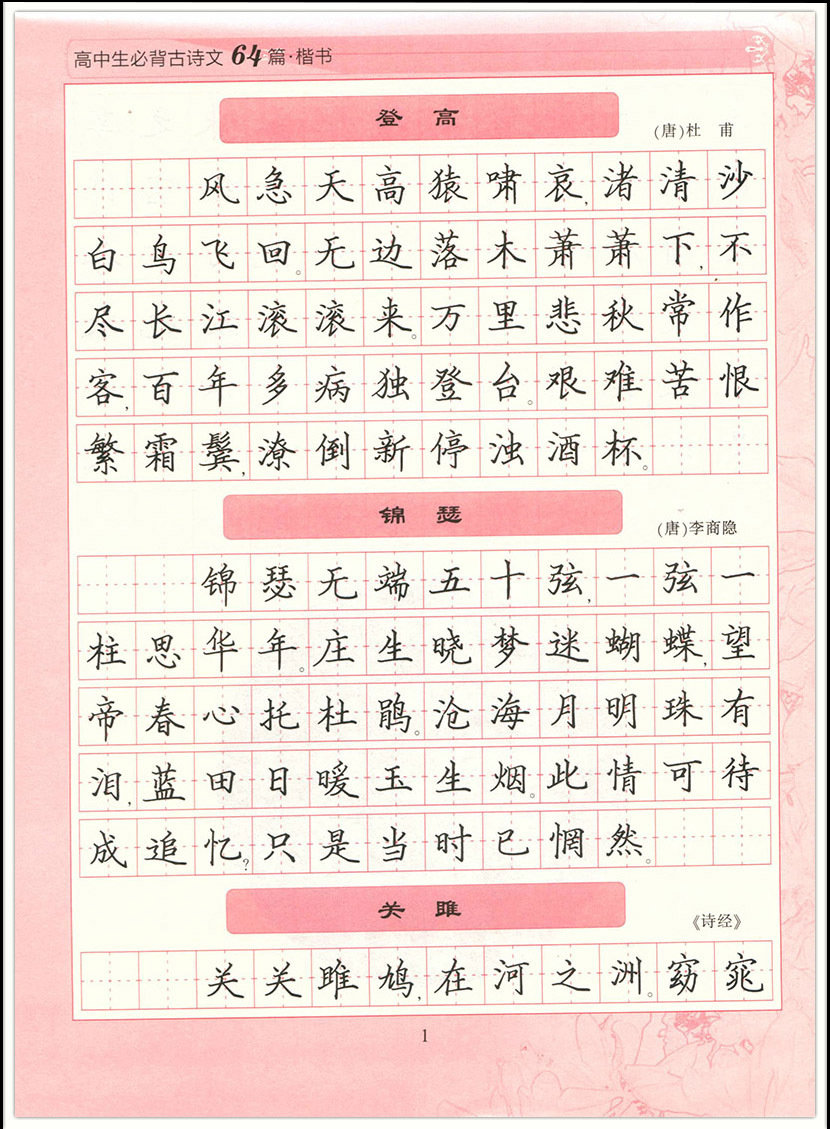 高中生必背古诗文64篇·楷书
登 高
(唐)杜 甫
风急天高猿啸哀,渚清沙
白鸟飞回。无边落木萧萧下,不
尽长江滚滚来。万里悲秋常作
客,百年多病独登台。艰难苦恨
繁霜鬓,潦倒新停浊酒杯。
锦 瑟
(唐)李商隐
锦瑟无端五十弦,一弦一
柱思华年。庄生晓梦迷蝴蝶,望
帝春心托杜鹃。沧海月明珠有
泪,蓝田日暖玉生烟。此情可待
成追忆?只是当时已惘然。
关 雎
《诗经》
关关雎鸠,在河之洲。窈窕
1